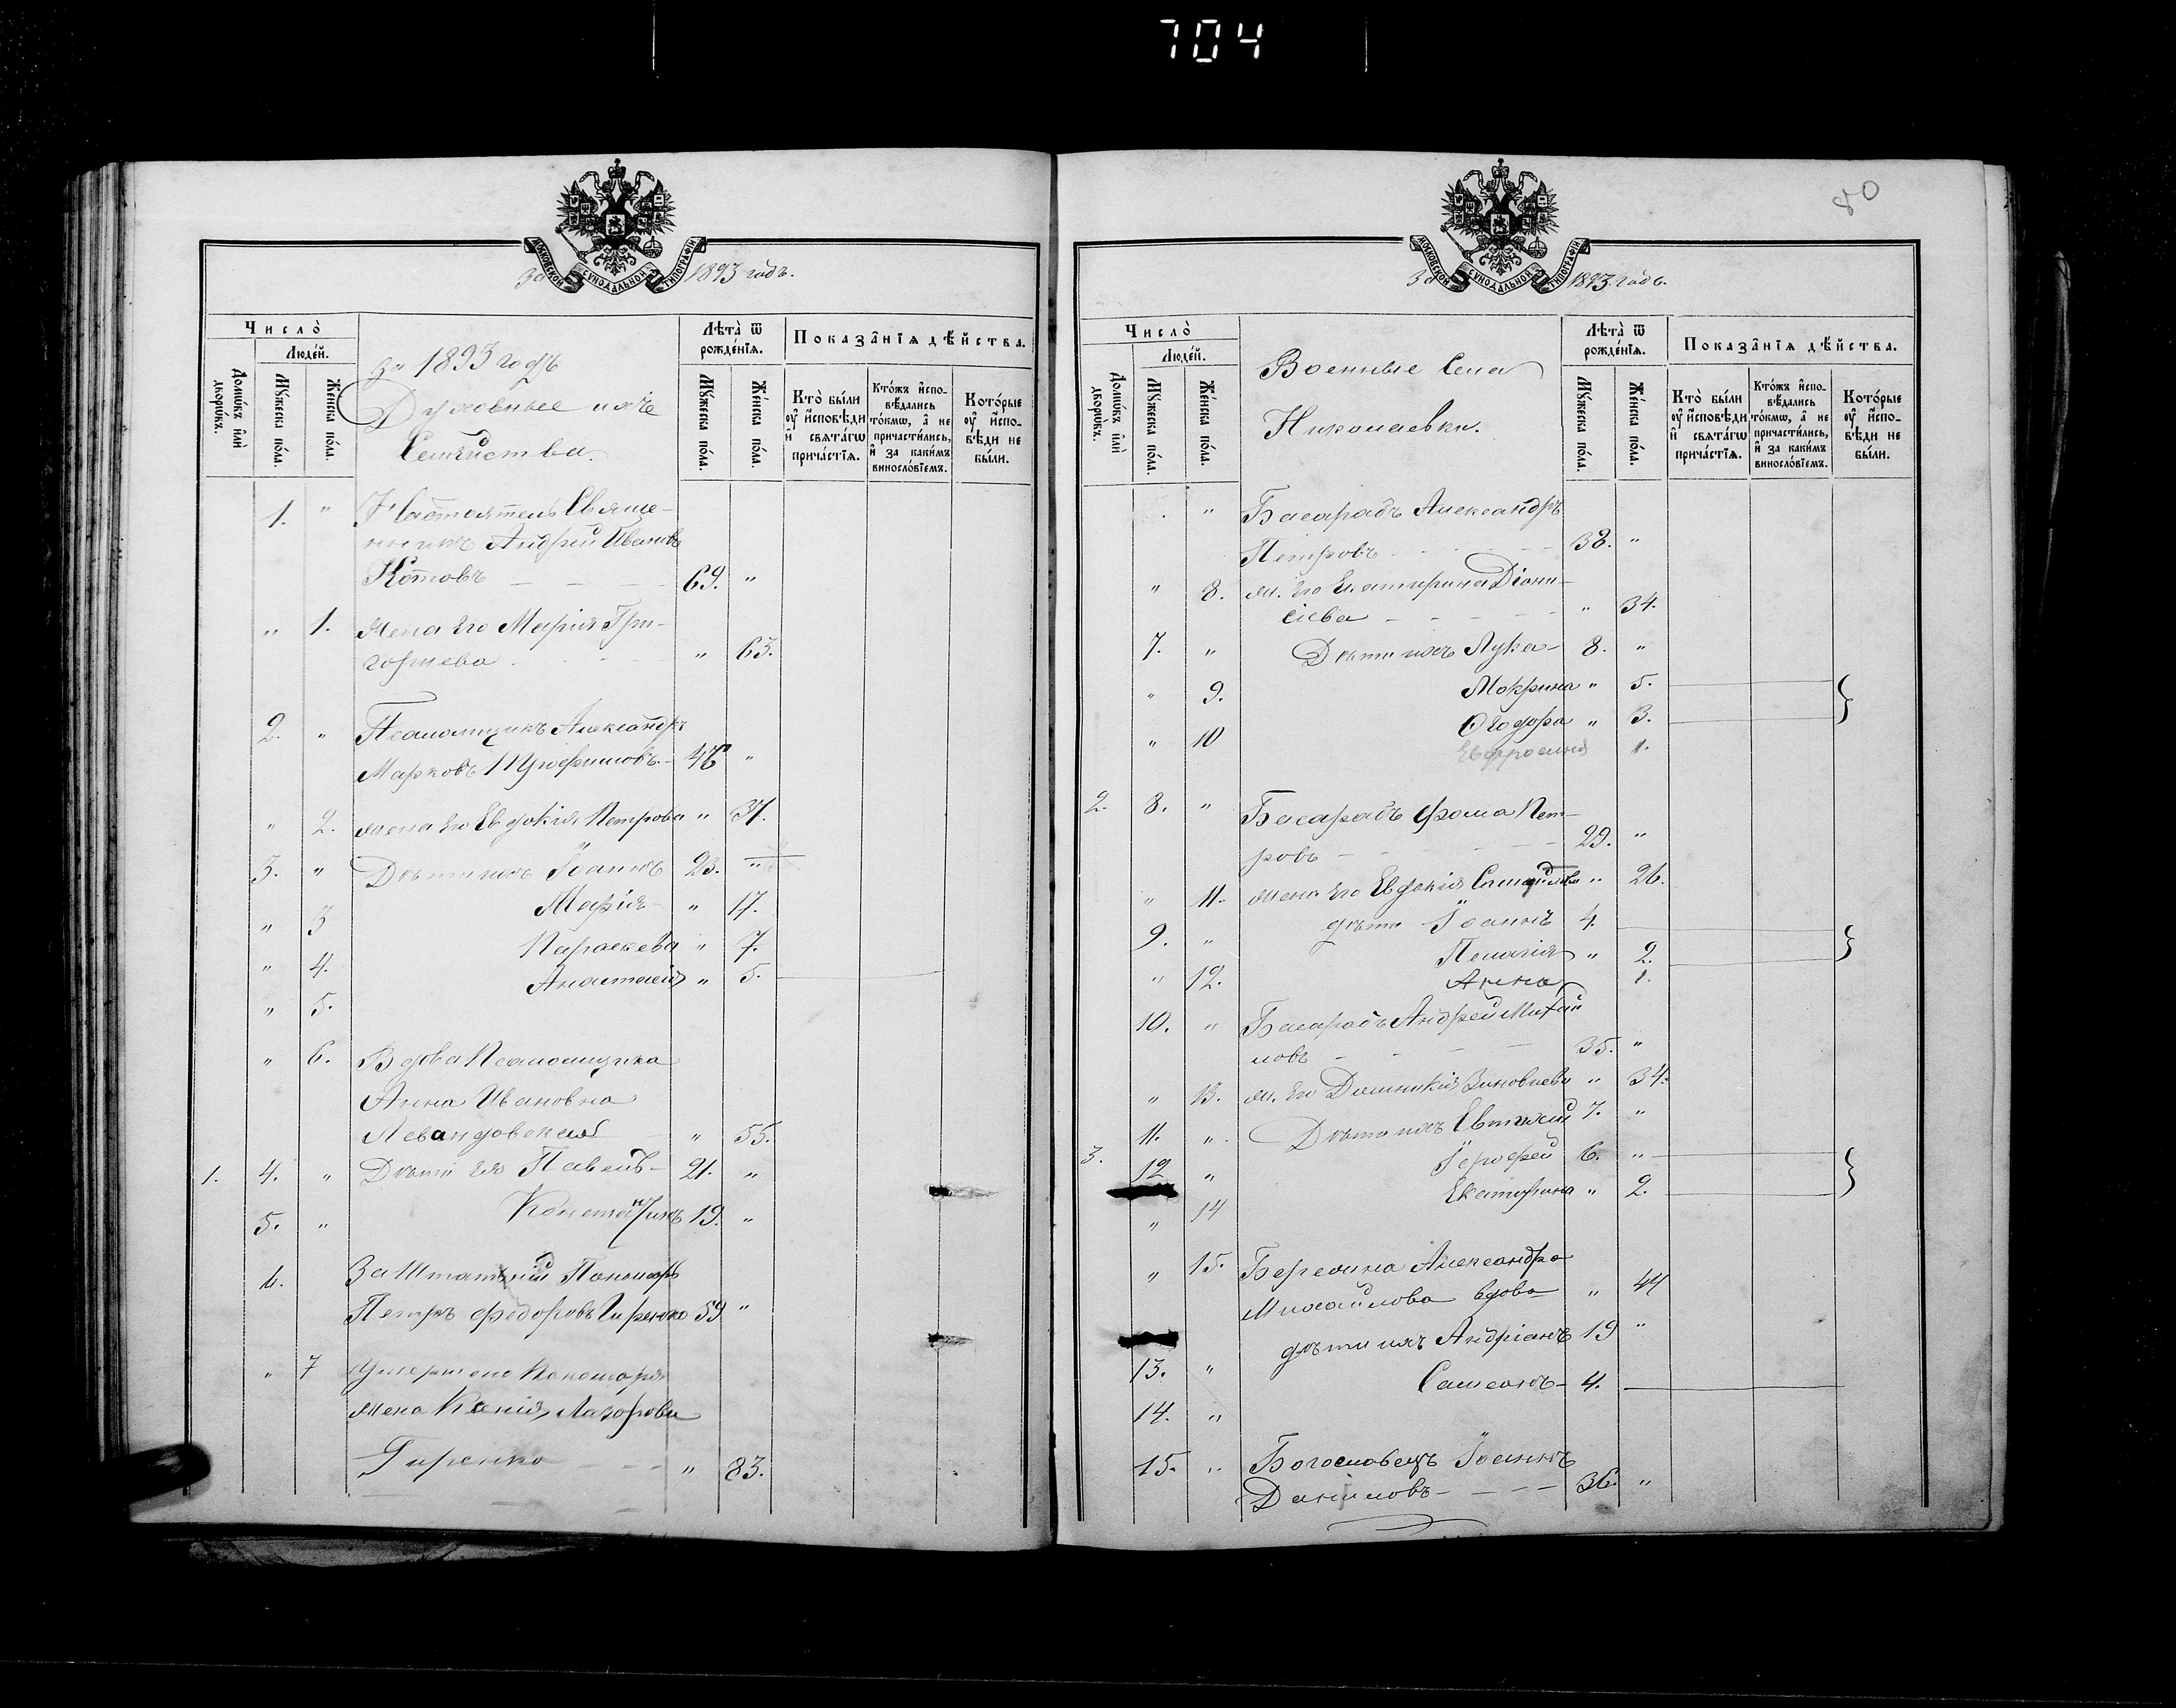 704
За 1893 годъ.
МОСКОВСКОЙ СѴНОДАЛЬНОЙ ТИПОГРАФІИ
Число̀
Люде́й.
Домѡ́въ и҆лѝ дворѡ́въ.
Мꙋ́жеска по́ла.
Же́нска по́ла.
За 1893 годъ
Духовные и ихъ
Семейства.
Лѣта̀ ѿ рожде́нїѧ.
Мꙋ́жеска по́ла.
Же́нска по́ла.
Показа̑нїѧ дѣ́йства.
Кто̀ бы́ли оу҆ и҆сповѣ́ди и҆ свѧта́гѡ прича́стїѧ.
Кто́жъ и҆сповѣ́дались то́кмѡ, а҆ не причасти́лись, и҆ за каки́мъ виносло́вїемъ.
Кото́рые оу҆ и҆сповѣ́ди не бы́ли.
1. " Настоятель Свяще-
нникъ Андрей Ивановъ
Котовъ 69. "
" 1. Жена его Марія Гри-
горьева " 63.
2. " Псаломщикъ Александръ
Марковъ "
" 2. жена его Евдокія Петрова " 37.
3. " Дѣти ихъ Іоаннъ 23. "
" 3 Марія " 17.
" 4. Параскева " 7.
" 5. Анастасія " 5.
" 6. Вдова Псаломщика
Анна Ивановна
Левандовская " 55.
1. 4. " Дѣти ея Павелъ 21. "
5. " Константинъ 19. "
6. Заштатный Пономарь
Петръ Федоровъ Гиренко 59 "
" 7 Умершаго Пономаря
жена Ксенія Лазорова
Гиренко " 83.
80
За 1893 годъ.
МОСКОВСКОЙ СѴНОДАЛЬНОЙ ТИПОГРАФІИ
Число̀
Люде́й.
Домѡ́въ и҆лѝ дворѡ́въ.
Мꙋ́жеска по́ла.
Же́нска по́ла.
Военные Села
Николаевки.
Лѣта̀ ѿ рожде́нїѧ.
Мꙋ́жеска по́ла.
Же́нска по́ла.
Показа̑нїѧ дѣ́йства.
Кто̀ бы́ли оу҆ и҆сповѣ́ди и҆ свѧта́гѡ прича́стїѧ.
Кто́жъ и҆сповѣ́дались то́кмѡ, а҆ не причасти́лись, и҆ за каки́мъ виносло́вїемъ.
Кото́рые оу҆ и҆сповѣ́ди не бы́ли.
" Басарабъ Александръ
Петровъ 38. "
" 8. ж. его Екатерина Діони-
сіева " 34.
7. " Дѣти ихъ Лука 8. "
" 9. Мокрина " 5.
" 10 Ѳеодора " 3.
Евфросинія 1.
2. 8. " Басарабъ Фома Пет-
ровъ 29. "
" 11. жена его Евдокія Самуилова " 26.
9. " дѣти Іоаннъ 4.
" 12. Пелагія " 2.
Анна 1.
10. " Басарабъ Андрей Михай
ловъ 35. "
" 13. ж. его Домникія Зиновіева " 34.
11. " Дѣти ихъ Евтихій 7. "
3. 12 " Іерофей 6. "
" 14 Екатерина " 2.
" 15. Березина Александра
Михайлова вдова " 44
13. " дѣти ихъ Андріанъ 19 "
14. " Самсонъ 4.
15. " Богословецъ Іоаннъ
Даниловъ 36. "